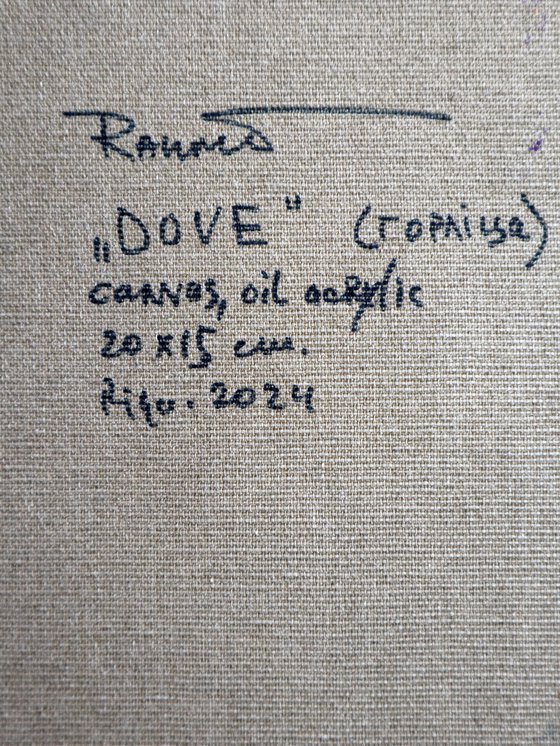 „DOVE" (горлица)
canvas, oil acrylic
20x15 см.
Riga. 2024